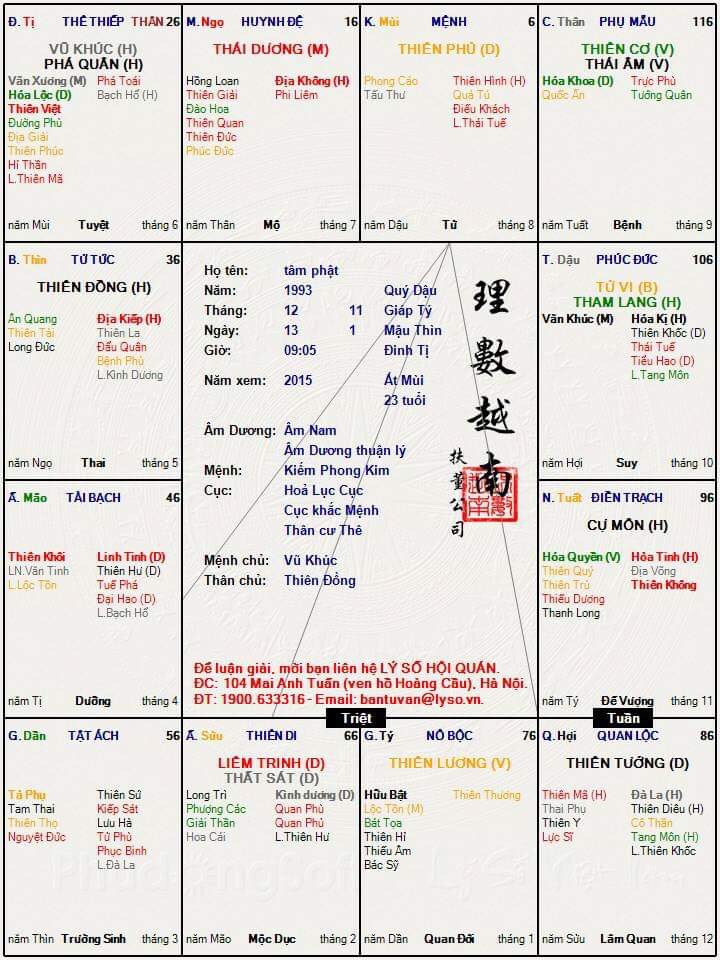 Đ. Tị THÊ THIẾP THÂN 26
VŨ KHÚC (H)
PHÁ QUÂN (H)
Văn Xương (M) Phá Toái
Hóa Lộc (D) Bạch Hổ (H)
Thiên Việt
Đường Phù
Địa Giải
Thiên Phúc
Hỉ Thần
L.Thiên Mã
năm Mùi Tuyệt tháng 6
M. Ngọ HUYNH ĐỆ 16
THÁI DƯƠNG (M)
Hồng Loan Địa Không (H)
Thiên Giải Phi Liêm
Đào Hoa
Thiên Quan
Thiên Đức
Phúc Đức
năm Thân Mộ tháng 7
K. Mùi MỆNH 6
THIÊN PHỦ (D)
Phong Cáo Thiên Hình (H)
Tấu Thư Quả Tú
Điếu Khách
L.Thái Tuế
năm Dậu Tử tháng 8
C. Thân PHỤ MẪU 116
THIÊN CƠ (V)
THÁI ÂM (V)
Hóa Khoa (D) Trực Phù
Quốc Ấn Tướng Quân
năm Tuất Bệnh tháng 9
B. Thìn TỬ TỨC 36
THIÊN ĐỒNG (H)
Ân Quang Địa Kiếp (H)
Thiên Tài Thiên La
Long Đức Đẩu Quân
Bệnh Phù
L.Kình Dương
năm Ngọ Thai tháng 5
Họ tên: tâm phật
Năm: 1993 Quý Dậu
Tháng: 12 11 Giáp Tý
Ngày: 13 1 Mậu Thìn
Giờ: 09:05 Đinh Tị
Năm xem: 2015 Ất Mùi
23 tuổi
Âm Dương: Âm Nam
Âm Dương thuận lý
Mệnh: Kiếm Phong Kim
Cục: Hoả Lục Cục
Cục khắc Mệnh
Thân cư Thê
Mệnh chủ: Vũ Khúc
Thân chủ: Thiên Đồng
理數越南
扶董公司
Để luận giải, mời bạn liên hệ LÝ SỐ HỘI QUÁN.
ĐC: 104 Mai Anh Tuấn (ven hồ Hoàng Cầu), Hà Nội.
ĐT: 1900.633316 - Email: bantuvan@lyso.vn.
T. Dậu PHÚC ĐỨC 106
TỬ VI (B)
THAM LANG (H)
Văn Khúc (M) Hóa Kị (H)
Thiên Khốc (D)
Thái Tuế
Tiểu Hao (D)
L.Tang Môn
năm Hợi Suy tháng 10
Ấ. Mão TÀI BẠCH 46
Thiên Khôi Linh Tinh (D)
LN.Văn Tinh Thiên Hư (D)
L.Lộc Tồn Tuế Phá
Đại Hao (D)
L.Bạch Hổ
năm Tị Dưỡng tháng 4
N. Tuất ĐIỀN TRẠCH 96
CỰ MÔN (H)
Hóa Quyền (V) Hỏa Tinh (H)
Thiên Quý Địa Võng
Thiên Trù Thiên Không
Thiếu Dương
Thanh Long
năm Tý Đế Vượng tháng 11
Triệt
Tuần
G. Dần TẬT ÁCH 56
Tả Phụ Thiên Sứ
Tam Thai Kiếp Sát
Thiên Thọ Lưu Hà
Nguyệt Đức Tử Phù
Phục Binh
L.Đà La
năm Thìn Trường Sinh tháng 3
Ấ. Sửu THIÊN DI 66
LIÊM TRINH (D)
THẤT SÁT (D)
Long Trì Kình dương (D)
Phượng Các Quan Phù
Giải Thần Quan Phủ
Hoa Cái L.Thiên Hư
năm Mão Mộc Dục tháng 2
G. Tý NÔ BỘC 76
THIÊN LƯƠNG (V)
Hữu Bật Thiên Thương
Lộc Tồn (M)
Bát Tọa
Thiên Hỉ
Thiếu Âm
Bác Sỹ
năm Dần Quan Đới tháng 1
Q. Hợi QUAN LỘC 86
THIÊN TƯỚNG (D)
Thiên Mã (H) Đà La (H)
Thai Phụ Thiên Diêu (H)
Thiên Y Cô Thần
Lực Sĩ Tang Môn (H)
L.Thiên Khốc
năm Sửu Lâm Quan tháng 12